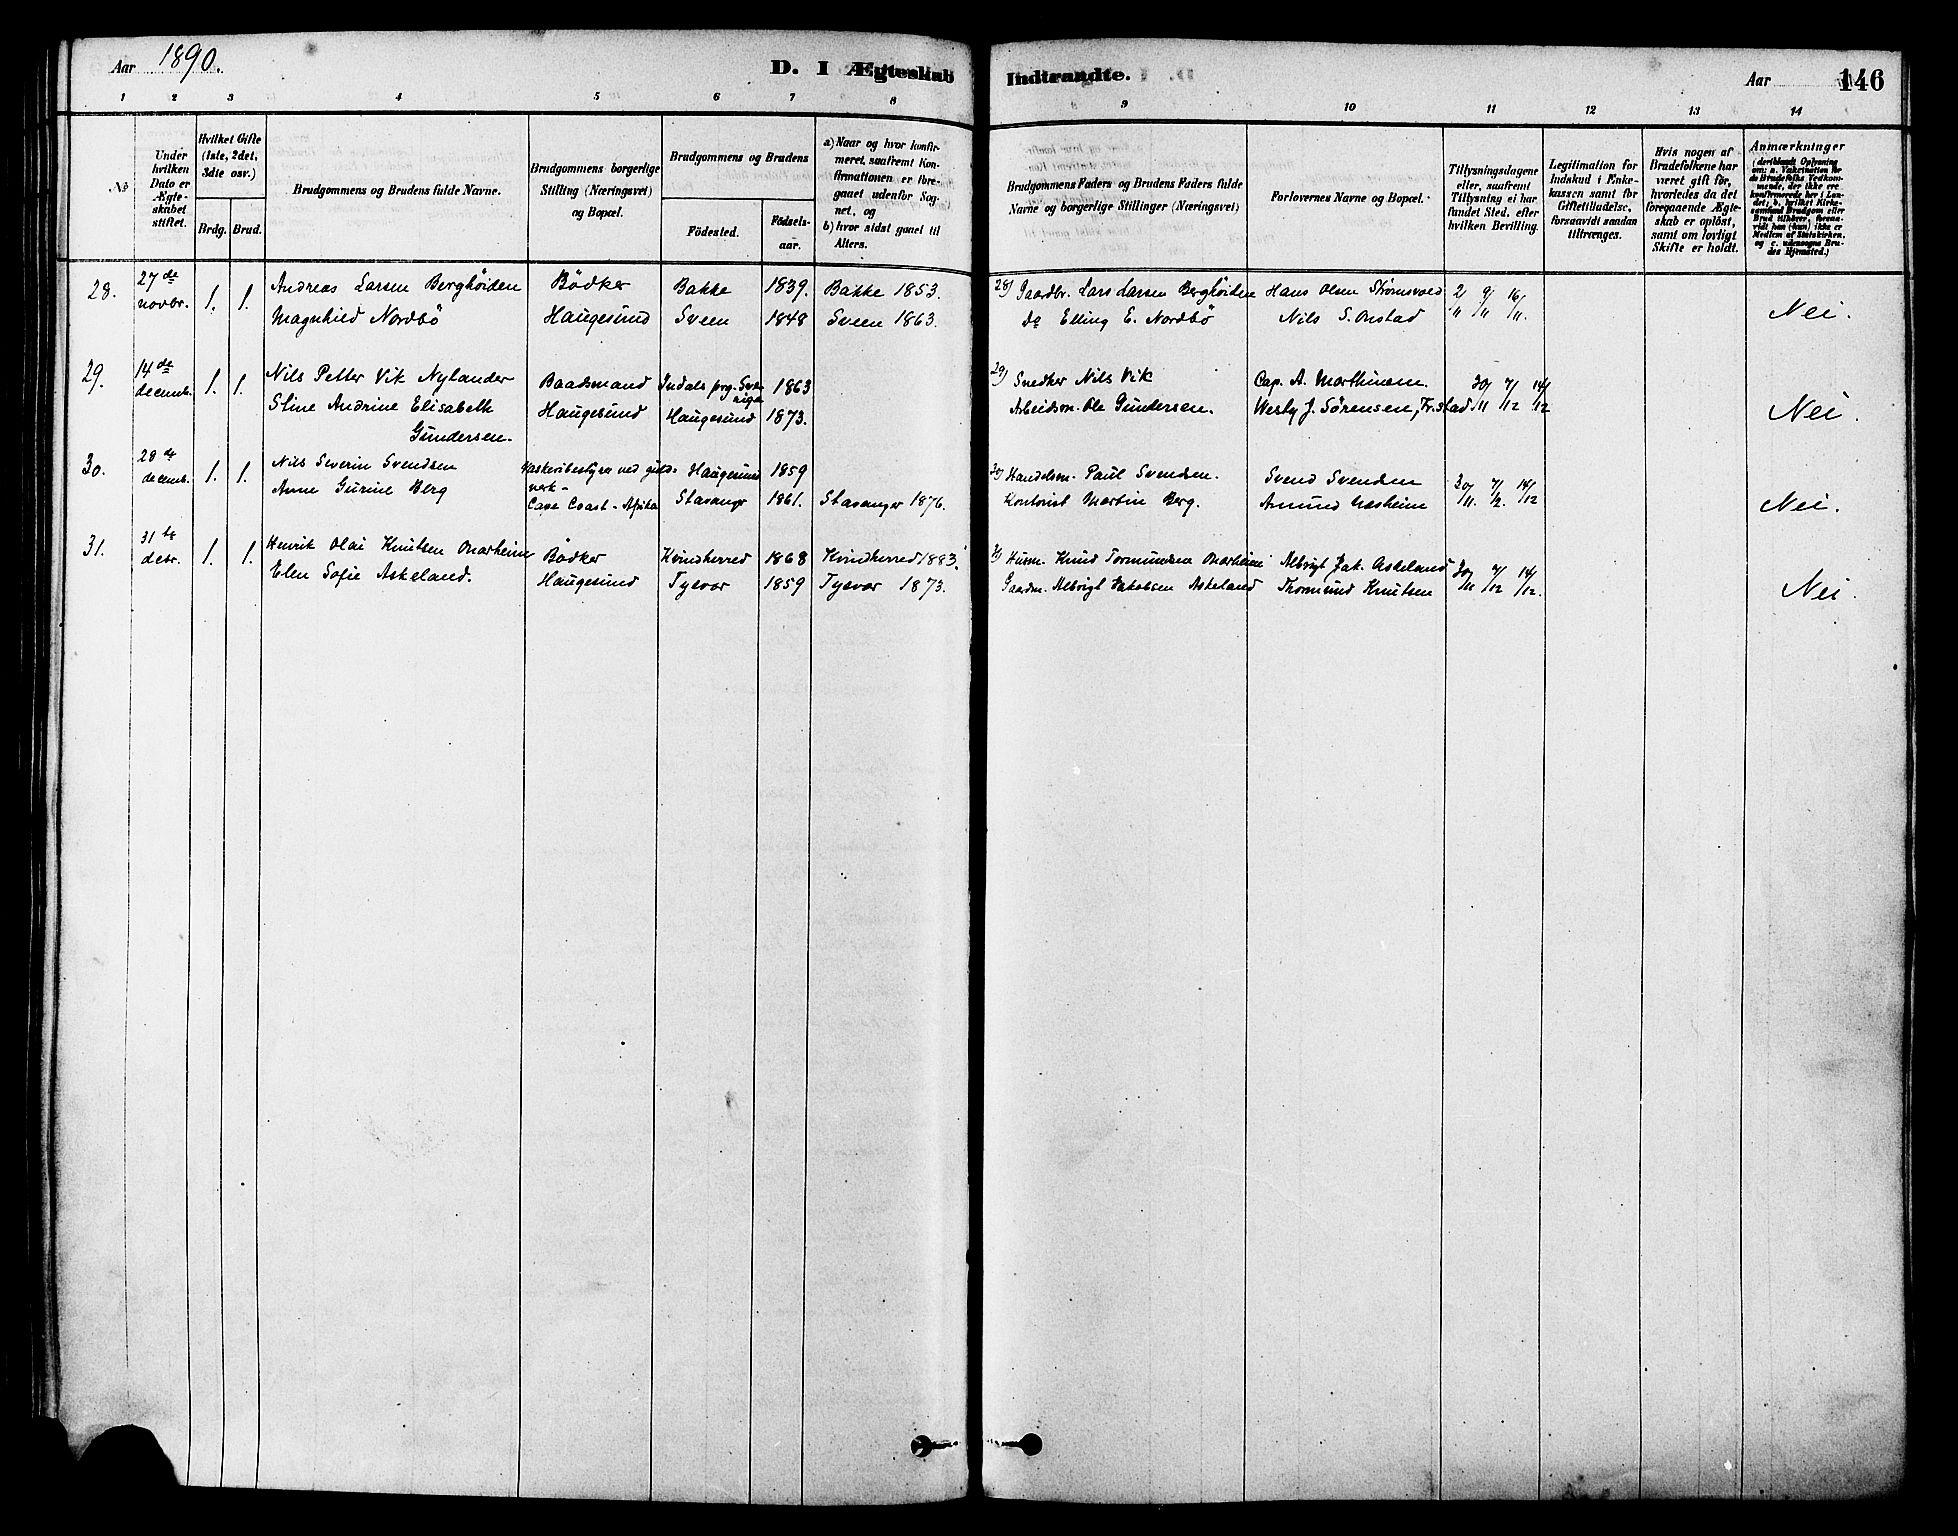 Aar 1890.
D. I Ægteskab Indtraadte.
Aar
146
1 2 3 4 5 6 7 8 9 10 11 12 13 14
No
Under hvilken Dato er Ægteskabet stiftet.
Hvilket Gifte (1ste, 2det, 3die osv.)
Brdg. Brud.
Brudgommens og Brudens fulde Navne.
Brudgommens borgerlige Stilling (Næringsvei) og Bopæl.
Brudgommens og Brudens
Fødested.
Fødselsaar.
a) Naar og hvor konfirmeret, saafremt Konfirmationen er foregaaet udenfor Sognet, og
b) hvor sidst gaaet til Alters.
Brudgommens Faders og Brudens Faders fulde Navne og borgerlige Stillinger (Næringsvei)
Forlovernes Navne og Bopæl.
Tillysningsdagene eller, saafremt Tillysning ei har fundet Sted, efter hvilken Bevilling.
Legitimation for Indskud i Enkekassen samt for Giftetilladelse, forsaavidt saadan tiltrænges.
Hvis nogen af Brudefolkene har været gift før, hvorledes da det foregaaende Ægteskab er opløst, samt om lovligt Skifte er holdt.
Anmærkninger (deriblandt Oplysning om: a. Vakcination for de Brudefolks Vedkommende, der ikke ere konfirmerede her i Landet; b. hvilket Kirkesamfund Brudgom eller Brud tilhører, forsaavidt han (hun) ikke er Medlem af Statskirken, og c. udensogns Brudes Hjemsted.)
28. 27de novbr. 1. 1. Andreas Larsen Berghöiden Bödker Bakke 1839. Bakke 1853. 28) Gaardbr. Lars Larsen Berghöiden Hans Olsen Strömsvold 2/11 9/11 16/11.
Magnhild Nordbö Haugesund Sveen 1848 Sveen 1863. do Elling E. Nordbö Nils S. Onstad Nei.
29. 14de decemb. 1. 1. Nils Petter Vik Nylander Baadsmand Indals prg. Sverige 1863 29) Snedker Nils Vik Cap. A. Marthinsen. 30/11 7/12 14/12
Stine Andrine Elisabeth Gundersen. Haugesund Haugesund 1873. Arbeidsm. Ole Gundersen. Westy J. Sörensen, Fr.stad Nei.
30. 28de decemb. 1. 1. Nils Severin Svendsen Vaskeribestyrer ved guldverk - Haugesund 1859 30) Handelsm. Paul Svendsen. Svend Svendsen 30/11. 7/12. 14/12
Anne Gurine Berg Cape Coast - Afrika Stavanger 1861. Stavanger 1876. Kontorist Martin Berg. Amund Næsheim Nei.
31. 31te decbr. 1. 1. Henrik Olai Knutsen Onarheim Bödker Kvindherred 1868 Kvindherred 1883. 31) Husm. Knud Tormundsen Onarheim Albrigt Jak. Askeland 30/11 7/12 14/12.
Elen Sofie Askeland. Haugesund Tysvær 1859 Tysvær 1873. Gaardm. Albrigt Jakobsen Askeland Thormund Knutsen Nei.